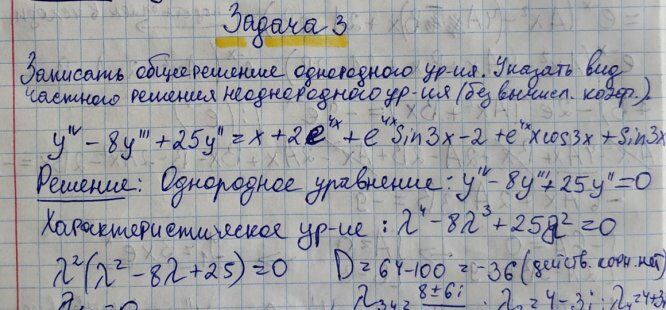 Задача 3
Записать общее решение однородного ур-ия. Указать вид
частного решения неоднородного ур-ия (без вычисл. коэф.).
y^IV - 8y''' + 25y'' = x + 2e^4x + e^4x sin3x - 2 + e^4x xcos3x + sin3x
Решение: Однородное уравнение: y^IV - 8y''' + 25y'' = 0
Характеристическое ур-ие: λ^4 - 8λ^3 + 25λ^2 = 0
λ^2(λ^2 - 8λ + 25) = 0 D = 64 - 100 = -36 (действ. корн. нет)
8±6i λ = 4 - 3i